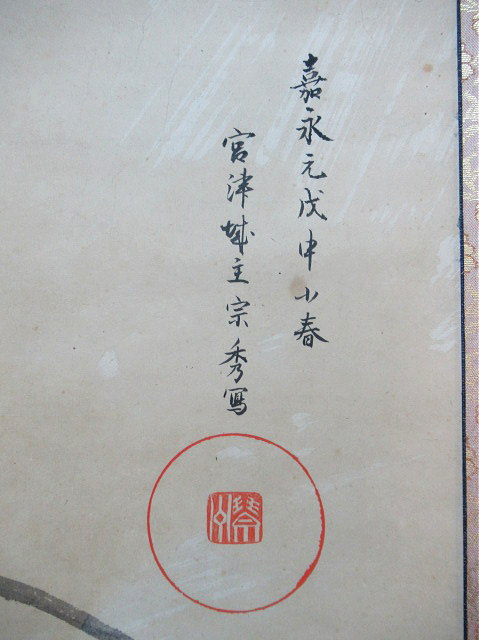 嘉永元戊申小春
宮津城主宗秀寫